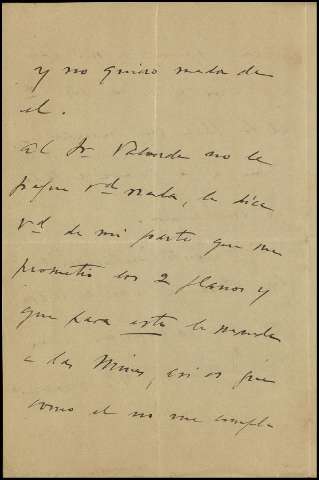 y no quiero nada de
el.
Al Sr Valverde no le
pague Vd nada, le dice
Vd de mi parte que me
prometio los 2 planos y
que para esto le mande
a las Minas, asi es que
como el no me cumpla